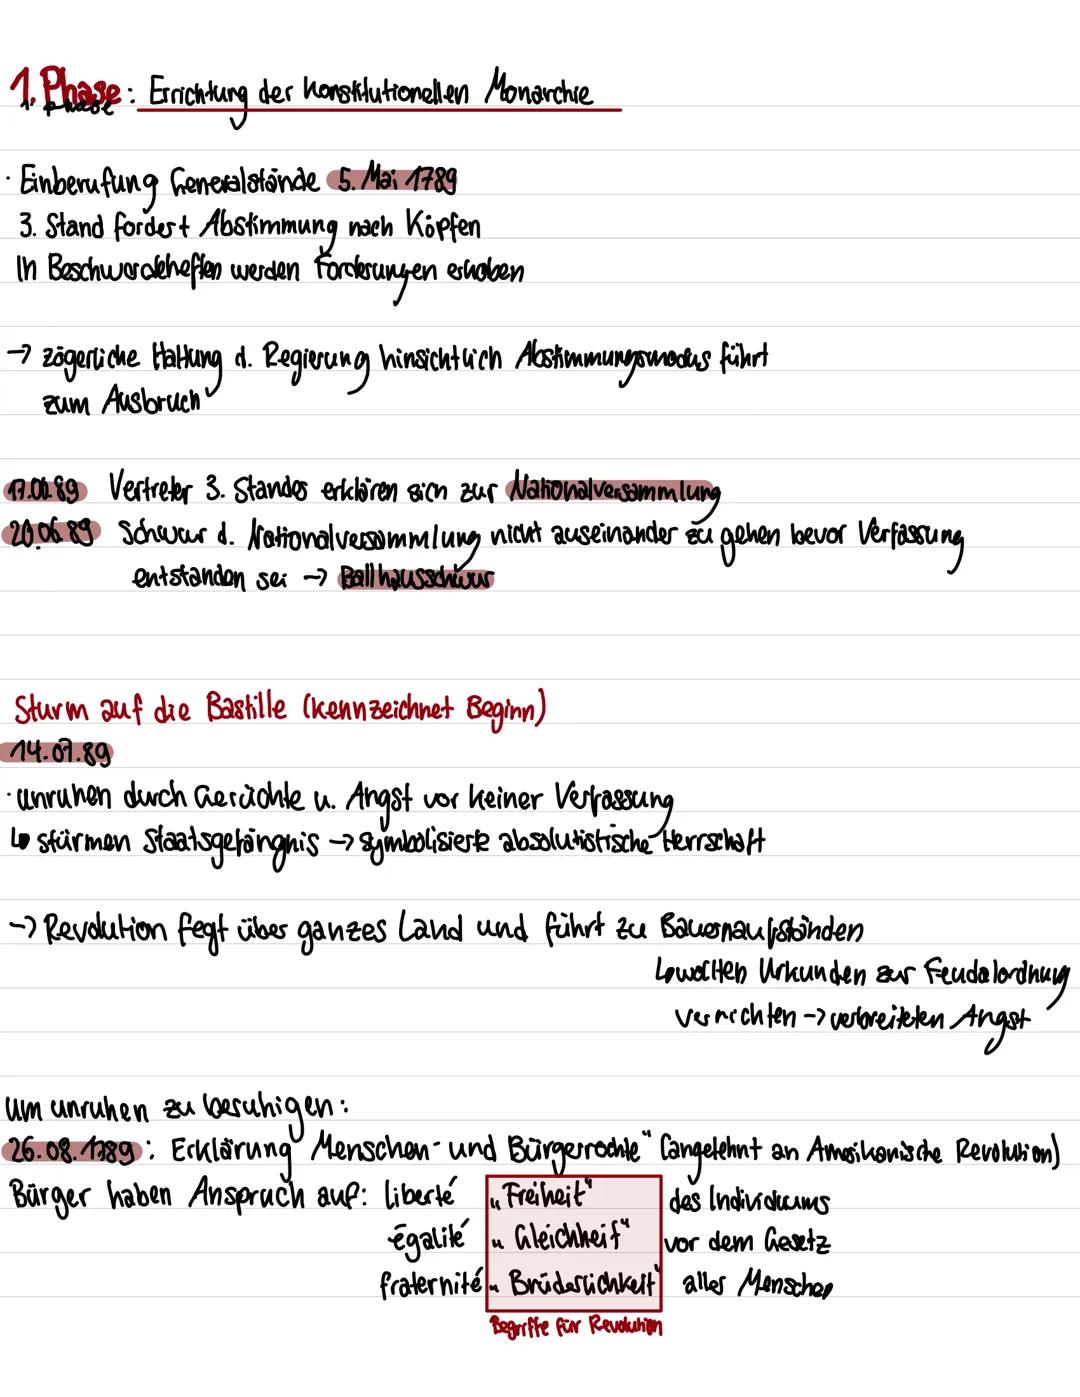 1. Phase: Errichtung der konstitutionellen Monarchie
1. Phase
· Einberufung Generalstände 5. Mai 1789
3. Stand fordert Abstimmung nach Köpfen
In Beschwerdeheften werden Forderungen erhoben
→ zögerliche Haltung d. Regierung hinsichtlich Abstimmungsmodus führt
zum Ausbruch
17.06.89 Vertreter 3. Standes erklären sich zur Nationalversammlung
20.06.89 Schwur d. Nationalversammlung nicht auseinander zu gehen bevor Verfassung
entstanden sei → Ballhausschwur
Sturm auf die Bastille (kennzeichnet Beginn)
14.07.89
· unruhen durch Gerüchte u. Angst vor keiner Verfassung
↳ stürmen Staatsgefängnis → symbolisierte absolutistische Herrschaft
→ Revolution fegt über ganzes Land und führt zu Bauernaufständen
↳ wollten Urkunden zur Feudalordnung
vernichten → verbreiteten Angst
um unruhen zu beruhigen:
26.08.1789: Erklärung Menschen- und Bürgerrechte" (angelehnt an Amerikanische Revolution)
Bürger haben Anspruch auf: liberté „Freiheit" des Individuums
égalité „Gleichheit" vor dem Gesetz
fraternité „Brüderlichkeit" aller Menschen
Begriffe für Revolution